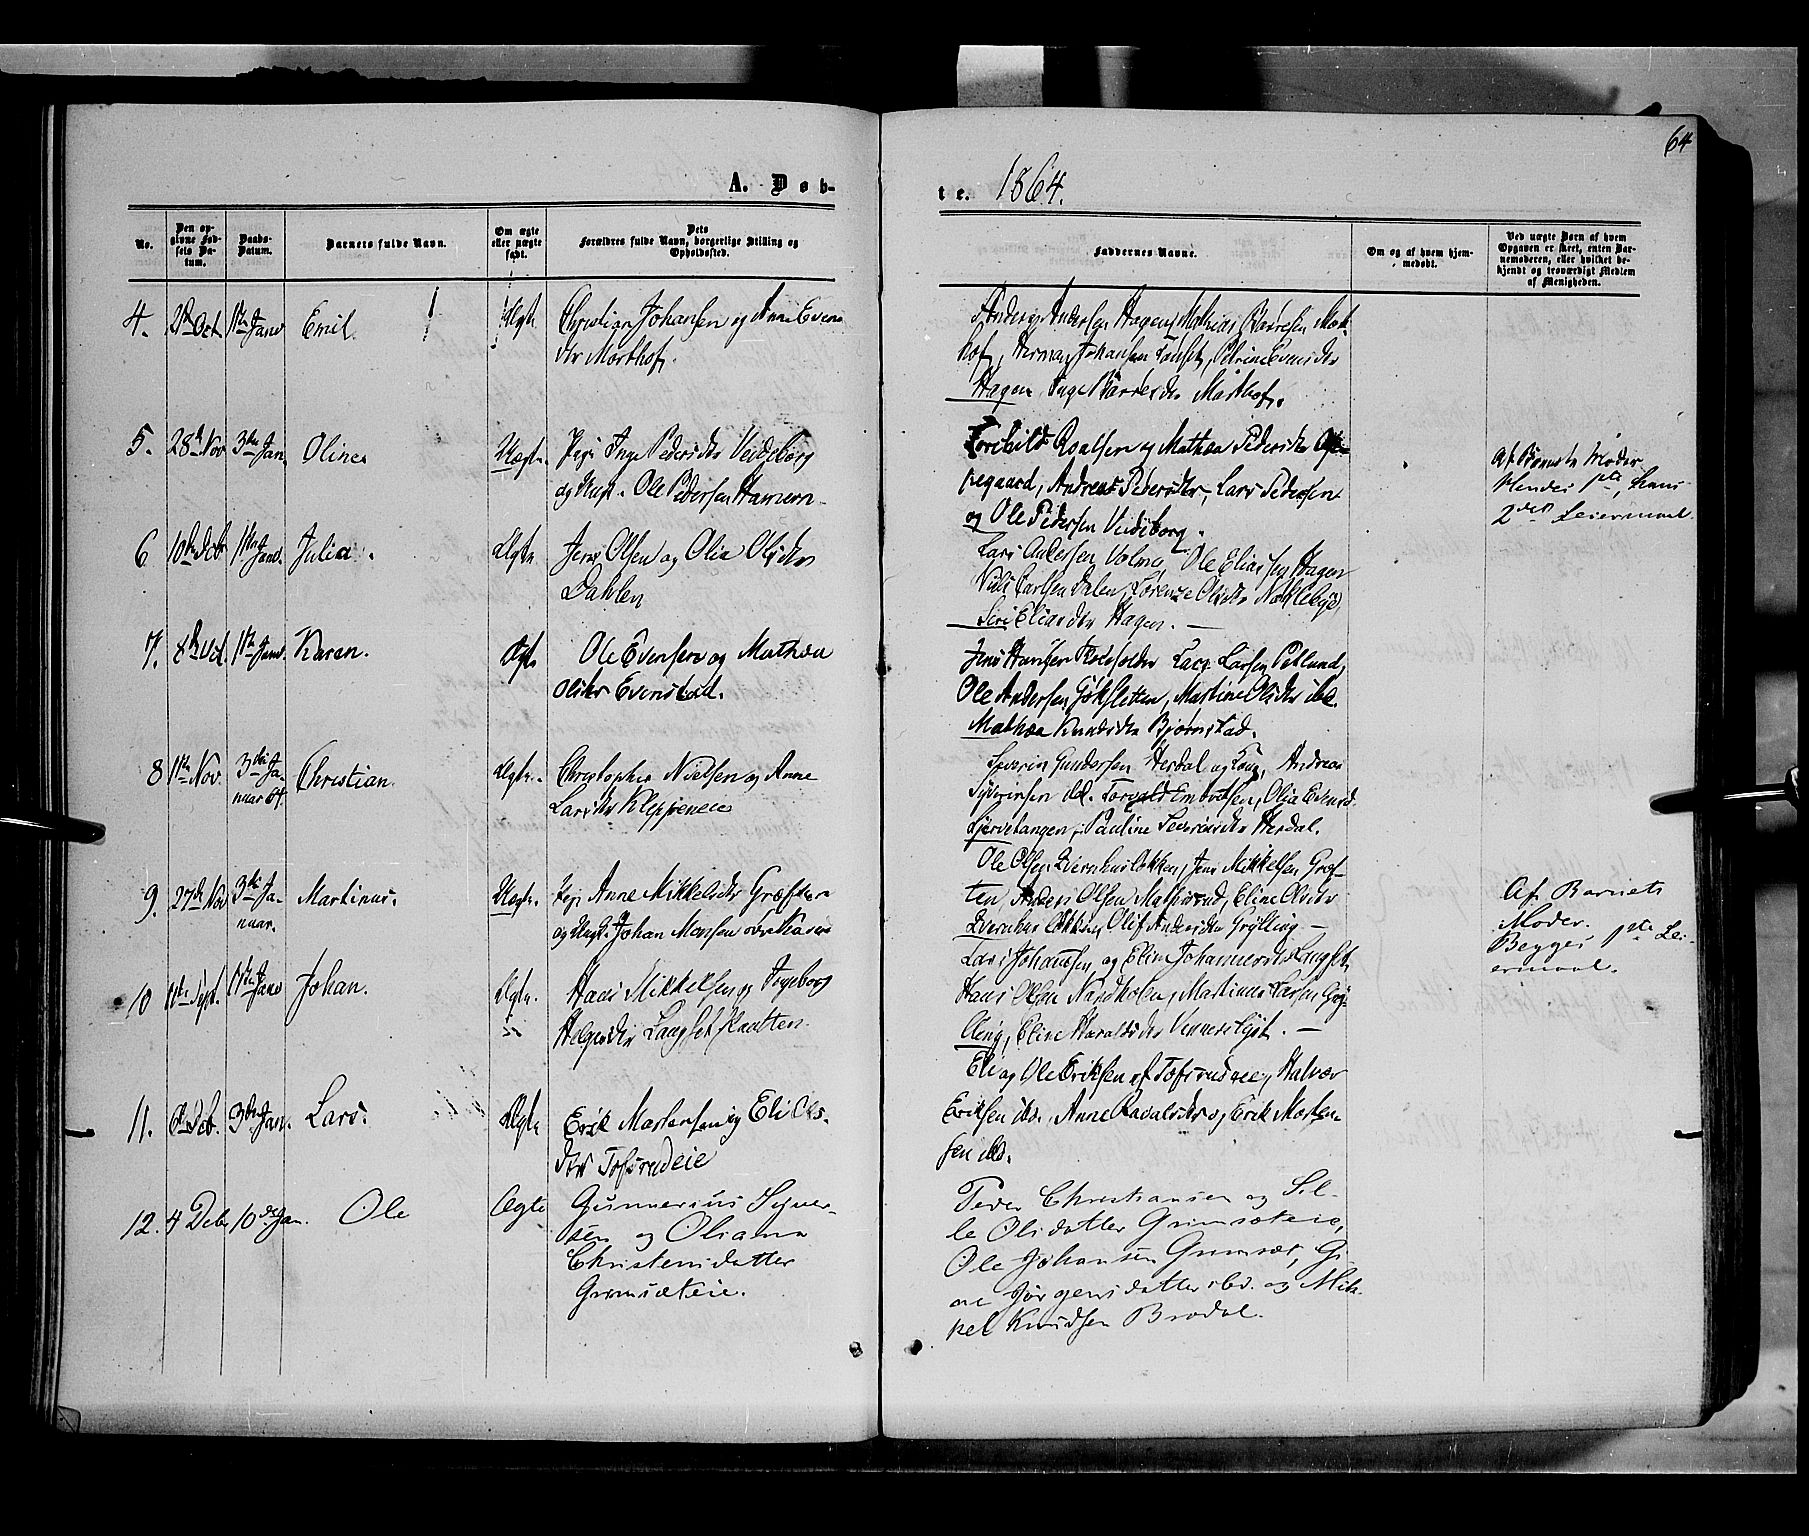 64
A. Døb-
te. 1864.
No.
Den op-
givne Fød-
sels Da-
tum.
Daabs-
Datum.
Barnets fulde Navn.
Om ægte
eller uægte
født.
Dets
Forældres fulde Navn, borgerlige Stilling og
Opholdssted.
Faddernes Navne.
Om og af hvem hjem-
medøbt.
Ved uægte Børn af hvem
Opgaven er skeet, enten Bar-
nemoderen, eller hvilket be-
kjendt og troværdigt Medlem
af Menigheden.
4. Oct. 1ste Janv Emil. Ægte. Christian Johansen og Anne Evens
dtr Morthof.
Anders Andersen Hagen, Mathias Børresen Mort-
hof, Herman Johansen, Petrine Evensdtr
Hagen Inge Børresdtr Morthof.
5. 28de Nov 3die Jan. Oline Uægte. Pige Inge Pedersdtr Veideborg
og Ungk. Ole Pedersen Hamern
og Mathea Pedersdtr
pegaard, Andreas Pedersdtr, Lars Pedersen
og Ole Pedersen Veideborg.
Af Barnets Moder
Hendes 1ste, hans
2det Leiermaal.
6 10de Deb 1ste Janv. Julia. Ægte Jens Olsen og Olia Olsdtr
Dahlen
Lars Andersen Volmer, Ole Eliassen Hagen
Niels Carlsen Dalen, Lorense Olsdtr Nøkleby,
Siri Eliasdtr Hagen. —
7. 8de Oct. 1ste Janv. Karen. Ægte Ole Evensen og Mathea
Olsdtr Evenstad.
Jens Hansen, Lars Larsen Petlund,
Ole Andersen Gjøksletten, Martine Olsdtr ibd.
Mathea Knudsdtr Bjørnstad.
8 11te Nov. 3die Ja-
nuar 64. Christian. Ægte. Christopher Nielsen og Anne
Larsdtr Kleppeneie
Severin Gundersen Herdal og Kone, Andreas
Syverinsen ibd. Torvald Embretsen, Olia Evensd.
Pauline Severinsdtr Herdal.
9. 27de Nov 3die Ja-
nuar. Martinus. Uægte. Pige Anne Mikkelsdtr Græften
og Ungk. Johan Monsen
Ole Olsen Kvernhusløkken, Jens Mikkelsen Græf-
ten, Anders Olsen Mathisrud, Eline Olsdtr
Kvernhusløkken, Oliv Andersdtr Grylling —
Af Barnets
Moder.
Begges 1ste Lei-
ermaal.
10 11te Sept. 1ste Janv Johan. Ægte. Hans Mikkelsen og Ingeborg
Helgesdtr Langsetplatten.
Lars Johansen og Eline Johannesdtr Langset,
Hans Olsen Nordholen, Martinus Larsen Gry-
lling, Eline Haraldsdtr Vennerslyst. —
11. 6te Deb. 3die Jan. Lars. Ægte Erik Mortensen og Eli Ols-
dtr Tofsrudeie
Eli og Ole Eriksen af Tofsrudeie, Halvor
Eriksen ibd. Anne og Erik Morten-
sen ibd.
12. 4 Debr 10de Jan. Ole Ægte Gunnerius Syver-
sen og Oliana
Christensdatter
Grimsæteie.
Peder Christiansen og Sil-
le Olsdatter Grimsæteie,
Ole Johansen Grimsæt, Gi
ne Jørgensdatter ibd. og Mik-
kel Knudsen Brodal.